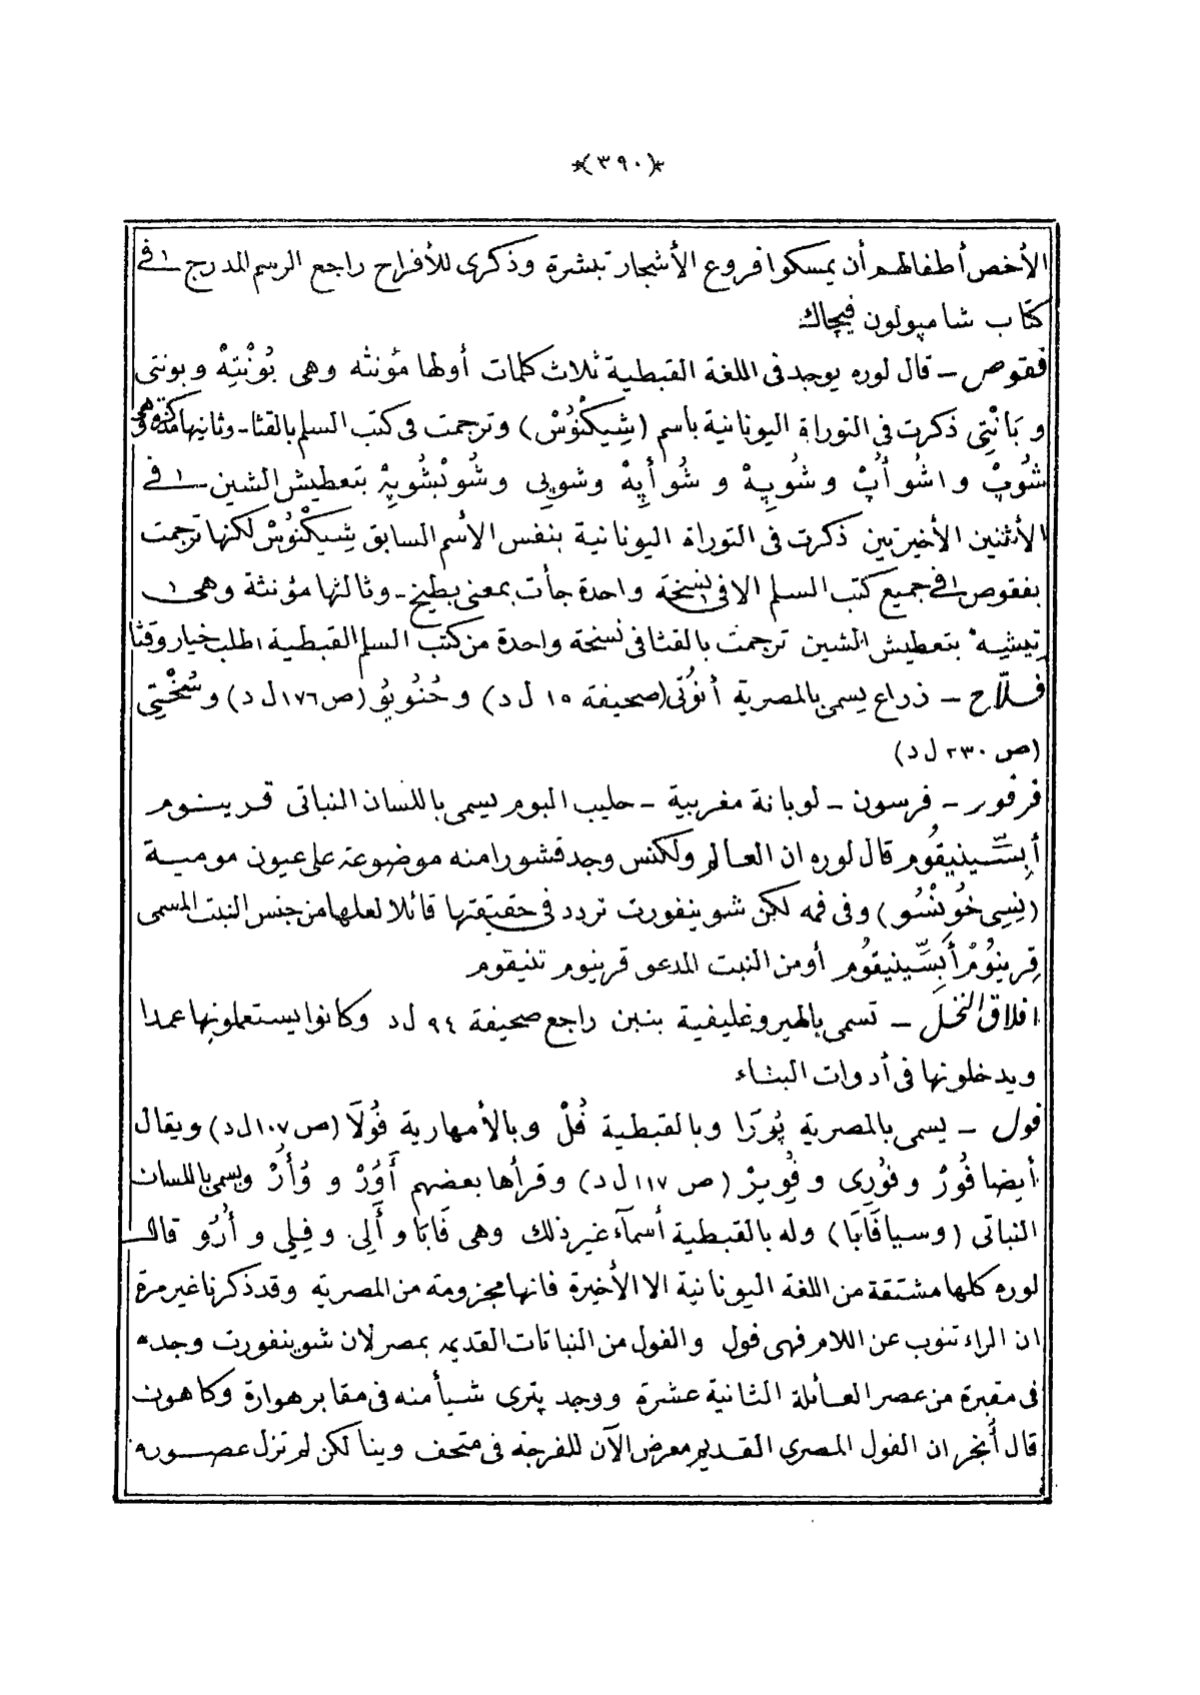 *(٣٩٠)*
الأخص أطفالهم أن يمسكوا فروع الأشجار تبشرة وذكرى للأفراح راجع الرسم المدرج في
كتاب شامپوليون فيچاك
فقوص – قال لوره يوجد فى اللغة القبطية ثلاث كلمات أولها مؤنثه وهى بُونْتِهْ وبونتى
و بَانْتِى ذكرت فى التوراة اليونانية باسم (شِيكْنُوسْ) وترجمت فى كتب السلم بالقثا – وثانيها مذكره وهى
شُوپْ و اشُوأُپْ وشُوپِهْ و شُوأَپِهْ وشوپِى وشُونْبشُوپِهْ بتعطيش الشين فى
الأثنين الأخيرتين ذكرت فى التوراة اليونانية بنفس الأسم السابق شِيكْنُوسْ لكنها ترجمت
بفقوص فى جميع كتب السلم الا فى نسخة واحدة جأت بمعنى بطيخ – وثالثها مؤنثة وهى
تيشيه بتعطيش الشين ترجمت بالقثا فى نسخة واحدة من كتب السلم القبطية اطلب خيار وقثا
فلّاح – ذراع يسمى بالمصرية أنوُتى (صحيفة ١٥ ل د) وحُنُوبُو (ص ١٧٦ ل د) وسُخْتِى
(ص ٢٣٠ ل د)
فرفور – فرسون – لوبانة مغربية – حليب البوم يسمى باللسان النباتى قرينوم
أبِسّينيقُوم قال لوره ان العالم ولكنس وجد قشورا منه موضوعة على عيون مومية
(نِسِى خُونْسُو) وفى فمه لكن شوينفورت تردد فى حقيقتها قائلا لعلها من جنس النبت المسمى
قِرينُومْ أَبِسّينيقُوم أو من النبت المدعو قرينوم تنيقوم
افلاق النخل – تسمى بالهيروغليفية بنبن راجع صحيفة ٩٤ ل د وكانوا يستعملونها عمدا
ويدخلونها فى أدوات البناء
فول – يسمى بالمصرية پُورَا وبالقبطية فُلْ وبالأمهارية فُولَا (ص ١٠٧ ل د) ويقال
أيضا فُورْ وفُورِى و فُوِيرْ (ص ١١٧ ل د) وقرأها بعضهم أَوُرْ و وُأُرْ ويسمى باللسان
النباتى (وسيا فَابَا) وله بالقبطية أسمآء غير ذلك وهى فَابَا و أَلِى و فِلِى و أُرُو قال
لوره كلها مشتقة من اللغة اليونانية الا الأخيرة فانها مجزومة من المصرية وقد ذكرنا غير مرة
ان الراء تنوب عن اللام فهى فول والفول من النباتات القديمه بمصر لان شوينفورت وجده
فى مقبرة من عصر العائلة الثانية عشرة ووجد پترى شيأ منه فى مقابر هوارة وكاهون
قال أنجر ان الفول المصرى القديم معرض الآن للفرجة فى متحف وينا لكن لم تزل عصوره